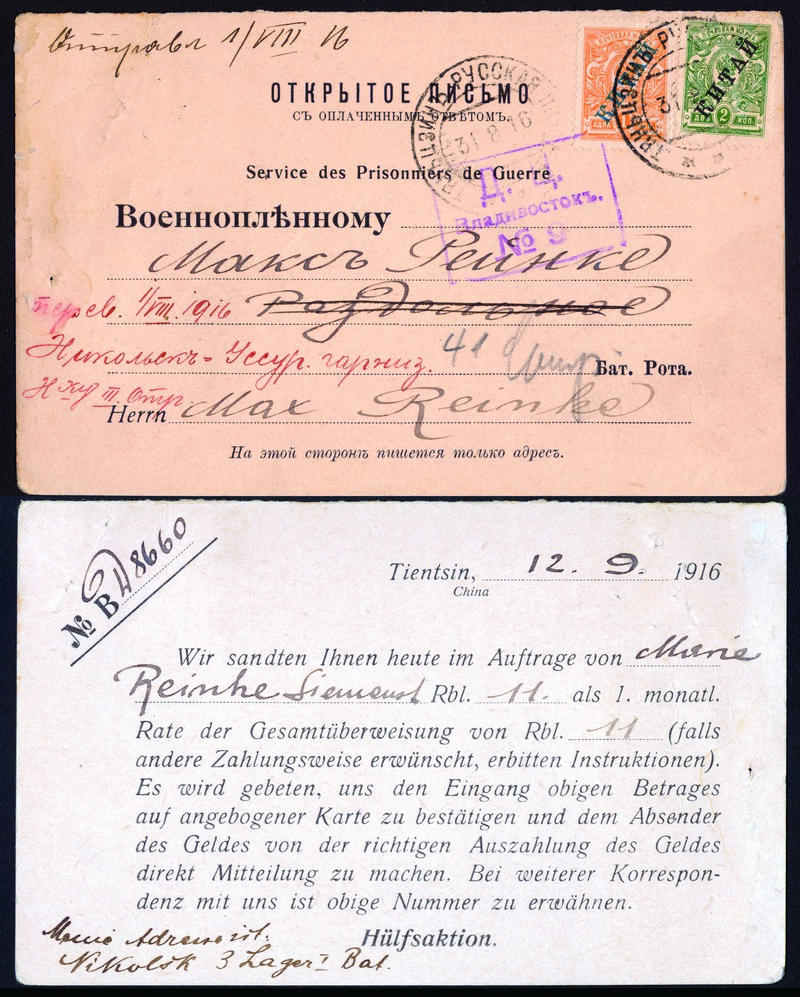 Отправл 1/VIII 16
ОТКРЫТОЕ ПИСЬМО
СЪ ОПЛАЧЕННЫМЪ ОТВѢТОМЪ.
РУССКАЯ
31 8 16
КИТАЙ
КИТАЙ
ДВѢ 2 КОП.
31
Service des Prisonniers de Guerre
Д. Ц.
Владивостокъ.
№ 9
Военноплѣнному
Максъ Рейнке
перев. 1/VIII. 1916 Раздольное
Никольскъ-Уссур. гарниз. 41
Бат. Рота.
III Отр.
Herrn Max Reinke
На этой сторонѣ пишется только адресъ.
№ B 48660
Tientsin, 12. 9. 1916
China
Wir sandten Ihnen heute im Auftrage von Marie
Reinke Rbl. 11. als 1. monatl.
Rate der Gesamtüberweisung von Rbl. 11 (falls
andere Zahlungsweise erwünscht, erbitten Instruktionen).
Es wird gebeten, uns den Eingang obigen Betrages
auf angebogener Karte zu bestätigen und dem Absender
des Geldes von der richtigen Auszahlung des Geldes
direkt Mitteilung zu machen. Bei weiterer Korrespon-
denz mit uns ist obige Nummer zu erwähnen.
Hülfsaktion.
Meine Adresse ist:
Nikolsk 3 Lager I Bat.